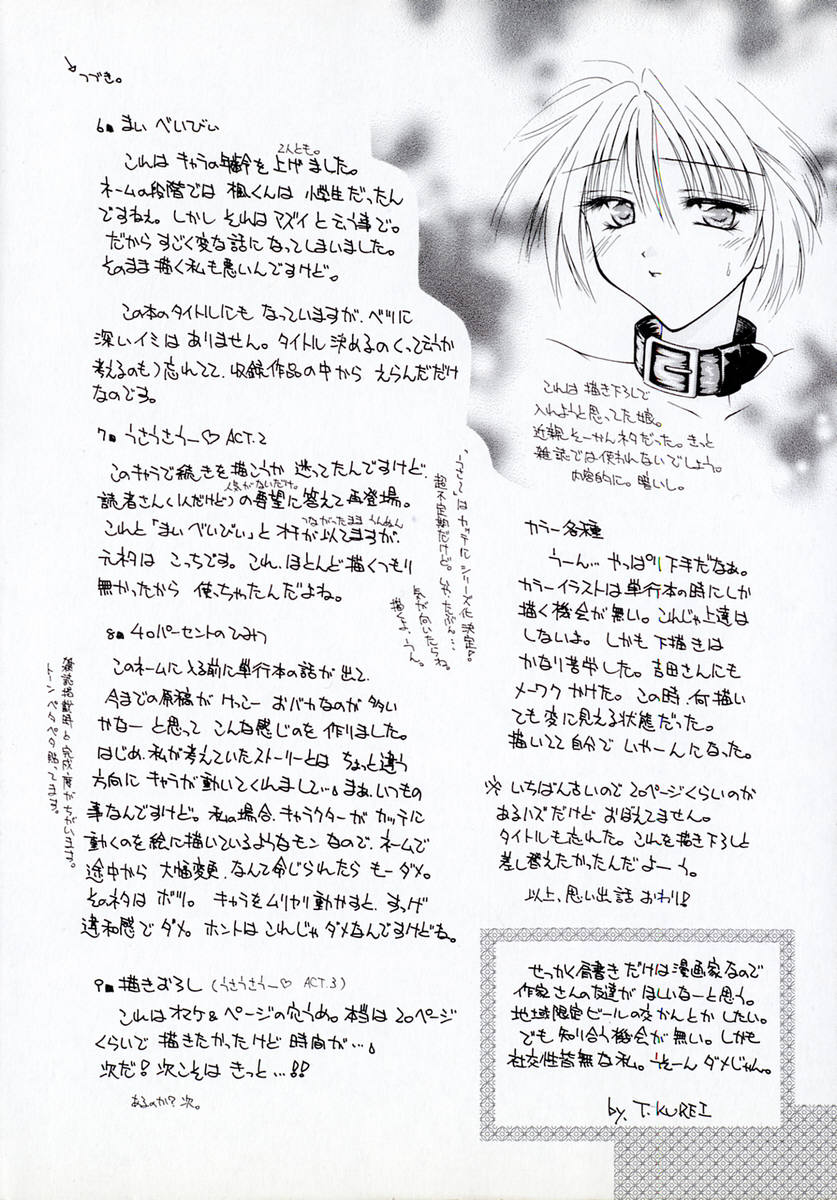 つづき。
6■ まい べいびぃ
これは キャラの年齢を上げました。
2人とも。
ネームの段階では 楓くんは 小学生だったん
ですねぇ。しかし それは マズイ と云う事で。
だから すごく変な話に なってしまいました。
そのまま描く私も悪いんですけど。
この本のタイトルにも なっていますが、べつに
深いイミは ありません。タイトル決めるの(くって云うか
考えるのも)忘れてて、収録作品の中から えらんだだけ
なのです。
7■ うさうさうー♡ ACT.2
このキャラで続きを描こうか 迷ってたんですけど、
人気がないだけ。
読者さん(1人だけど)の要望に答えて再登場。
これと「まい べいびぃ」と オチが以てますが、
元ネタは こっちです。これ、ほとんど描くつもり
無かったから 使っちゃたんだよね。
超不定期だけど。
気が向いたらね。
8■ 40パーセントのひまわり
このネームに入る前に単行本の話が 出て、
今までの原稿が けっこー おバカなのが 多い
かなー と思って こんな感じのを 作りました。
はじめ、私が考えていたストーリーとは ちょっと違う
方向に キャラが動いてくれまして…。まぁ、いつもの
事なんですけど。私の場合、キャラクターが カッテに
動くのを 絵に描いているようなモン なので、ネームで
途中から 大幅変更、なんて命じられたら もーダメ。
そのネタは ボツ。 キャラをムリヤリ動かすと、すっげ
違和感で ダメ。ホントは これじゃ ダメなんですけどね。
雑誌掲載時と完成度がちがいます。
トーン ペタペタ 貼ってます。
9■ 描きおろし (うさうさうー♡ ACT.3)
これは オマケ&ページの穴うめ。本当は 20ページ
くらいで 描きたかったけど 時間が…。
次だ!次こそは きっと…!!
あるのか?次。
これは 描き下ろしで
入れようと思ってた娘。
近親そーかんネタだった。きっと
雑誌では使われないでしょう。
内容的に。暗いし。
カラー各種
うーん… やっぱり下手だなぁ。
カラーイラストは 単行本の時にしか
描く機会が 無い。これじゃ上達は
しないよ。しかも 下描きは
かなり苦労した。吉田さんにも
メーワク かけた。この時、何描い
ても変に見える状態だった。
描いてて自分で いやーんになった。
※ いちばんさいので 20ページくらいのが
あるハズだけど おぼえてません。
タイトルも忘れた。これを描き下ろしと
差し替えたかったんだよーう。
以上、思い出話 おわり!
せっかく肩書きだけは漫画家なので
作家さんの友達が ほしいなーと思う。
地域限定ビールの交かんとか したい。
でも 知り合う機会が無い。しかも
社交性皆無な私。うそーん ダメじゃん。
by. T.KUREI